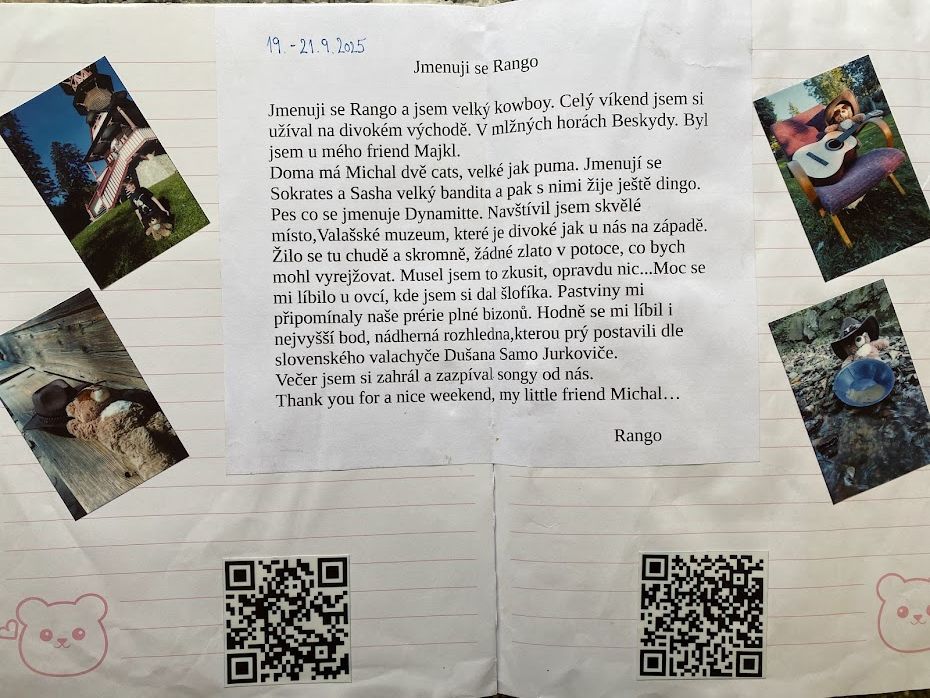 19. - 21. 9. 2025
Jmenuji se Rango
Jmenuji se Rango a jsem velký kowboy. Celý víkend jsem si
užíval na divokém východě. V mlžných horách Beskydy. Byl
jsem u mého friend Majkl.
Doma má Michal dvě cats, velké jak puma. Jmenují se
Sokrates a Sasha velký bandita a pak s nimi žije ještě dingo.
Pes co se jmenuje Dynamitte. Navštívil jsem skvělé
místo,Valašské muzeum, které je divoké jak u nás na západě.
Žilo se tu chudě a skromně, žádné zlato v potoce, co bych
mohl vyrejžovat. Musel jsem to zkusit, opravdu nic...Moc se
mi líbilo u ovcí, kde jsem si dal šlofíka. Pastviny mi
připomínaly naše prérie plné bizonů. Hodně se mi líbil i
nejvyšší bod, nádherná rozhledna,kterou prý postavili dle
slovenského valachyče Dušana Samo Jurkoviče.
Večer jsem si zahrál a zazpíval songy od nás.
Thank you for a nice weekend, my little friend Michal…
Rango